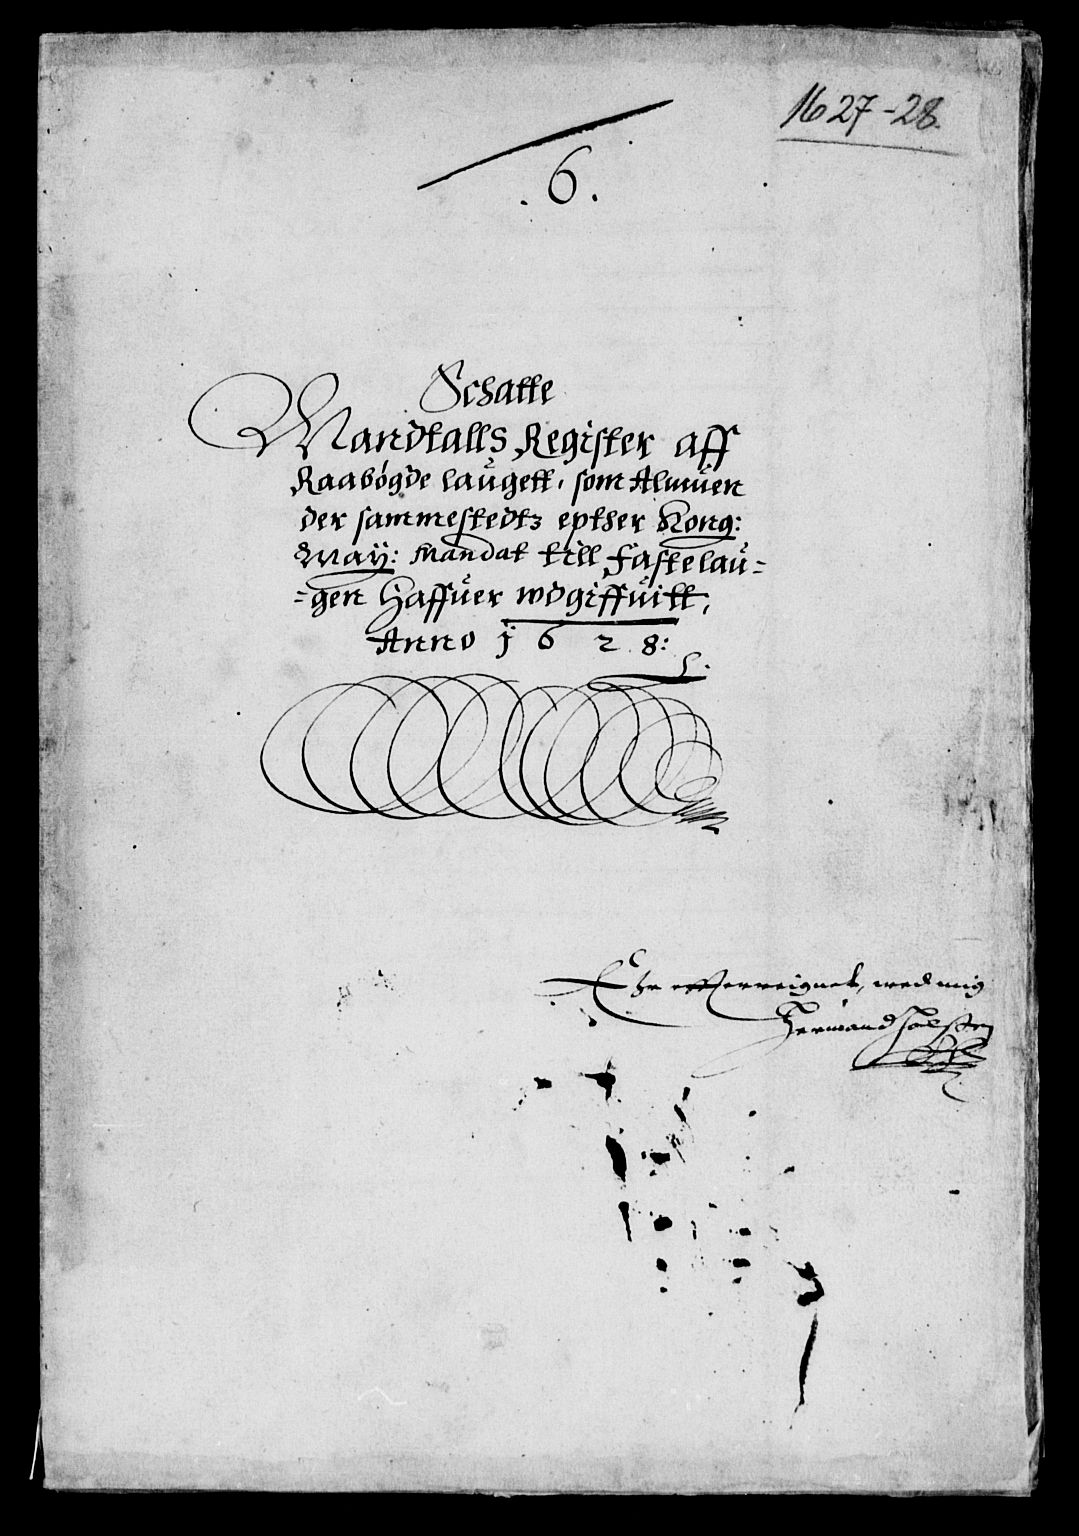 1627-28.
. 6 .
Schatte
Mandtalls Register aff
Raabógde laugett, som Almuen
der sammestedtz epther Kong:
May: Mandat till fastelau=
=gen Haffuer wdgiffuitt,
Anno 1628:
Er wed mig
Hermand Holsten